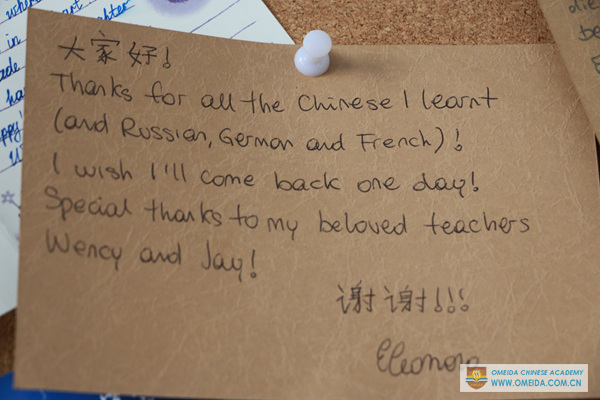 大家好!
Thanks for all the Chinese I learnt
(and Russian, German and French)!
I wish I'll come back one day!
Special thanks to my beloved teachers
Wency and Jay!
谢谢!!!
Eleonora
OMEIDA CHINESE ACADEMY
WWW.OMEIDA.COM.CN
where
in
die
be